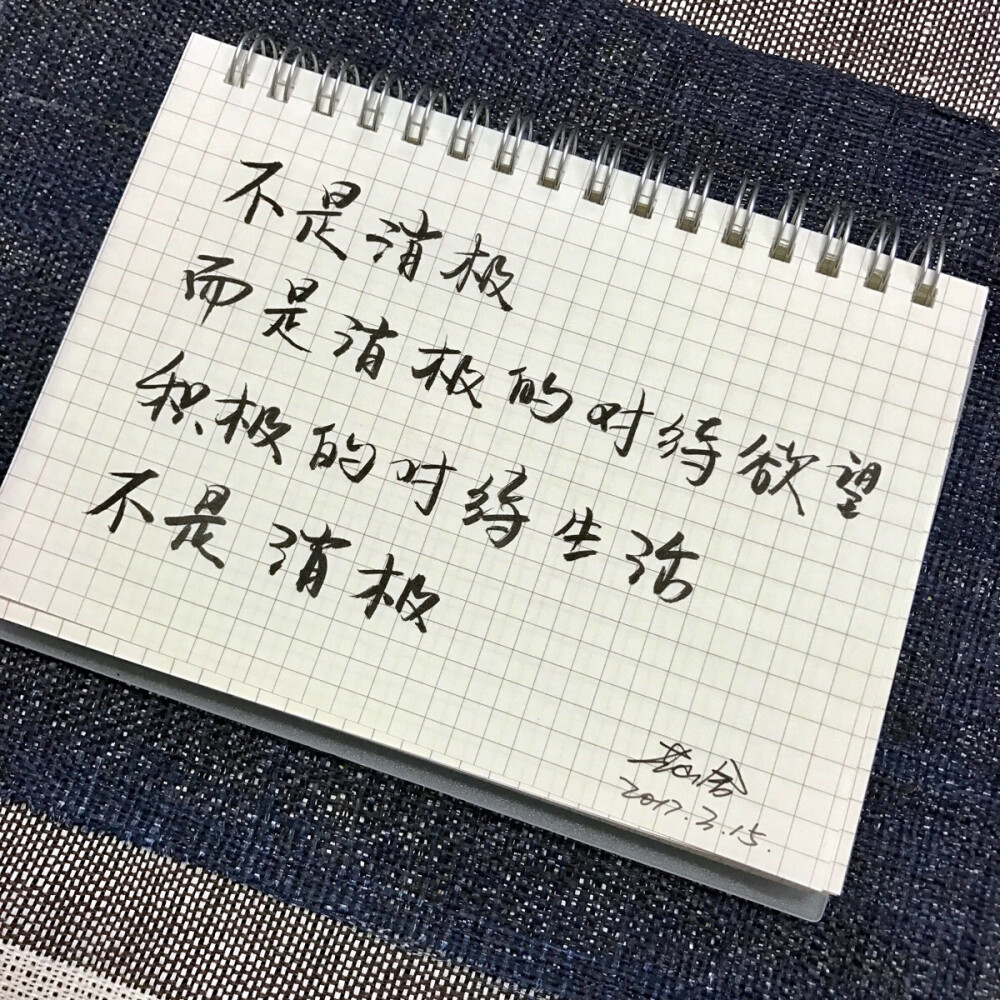 不是消极
而是消极的对待欲望
积极的对待生活
不是消极
2017.2.15.